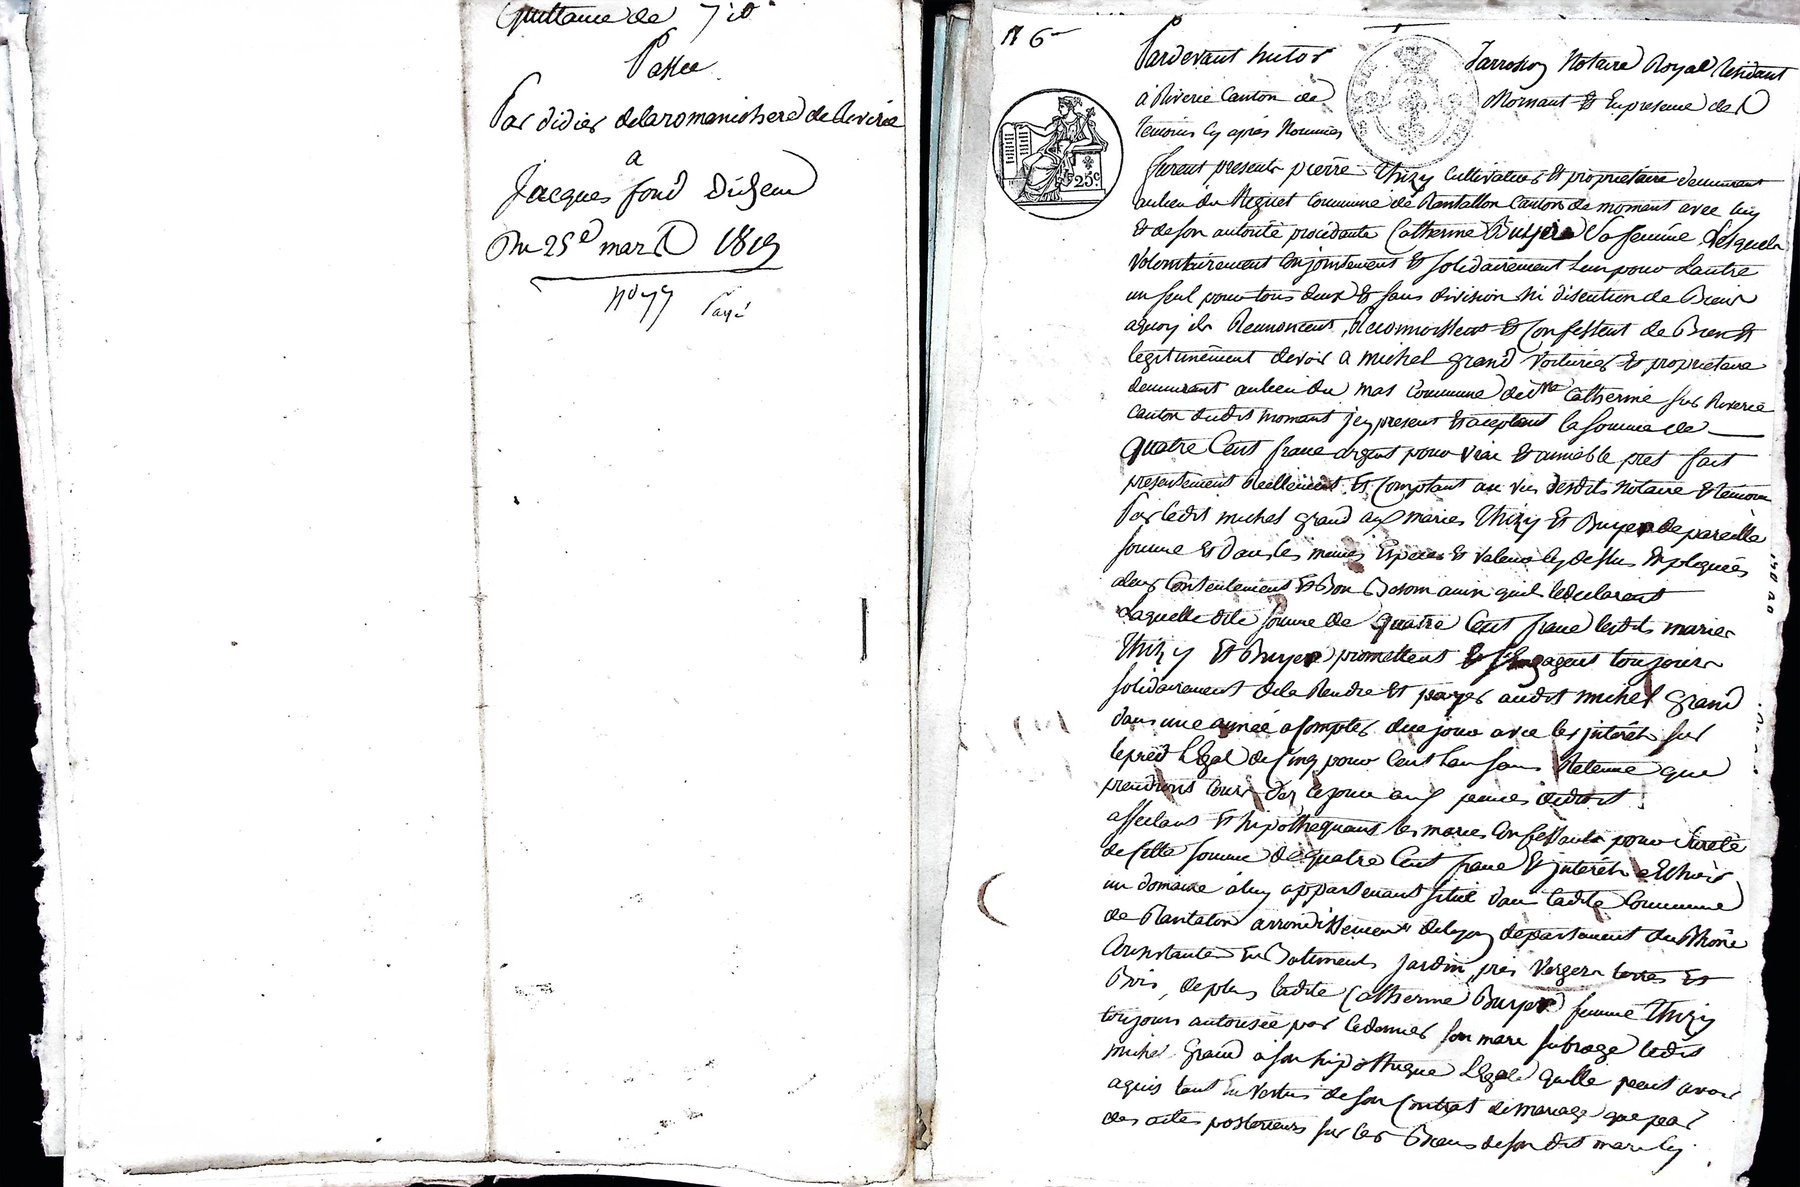 Quittance de 7 in
Passée
Par didier delaromanichere de Riverie
a
Jacques fond Dizeu
Du 25e mars 1819
N° 77 Payé
N 6
Pardevant hutor Jarrosson Notaire Royal Residant
à Riverie Canton de Mornant Et En presence des
temoins Cy après Nommés
furent presents pierre Thizy Cultivateur Et proprietaire demeurant
au lieu du Riguet Commune de Rantallon Canton de mornant avec luy
Et deson autorité procedante Catherine Buyer Sa femme, lesquels
Volontairement Conjointement Et solidairement l'un pour l'autre
un seul pour tous deux Et sans division Ni discution de Biens
aquoy ils Renoncent, Reconnoissent Et Confessent de Bien Et
legitimement devoir a michel grand Voiturier Et proprietaire
demeurant au lieu du mas Commune de Ste Catherine sur Riverie
Canton dudit mornant icy present Et aceptant la somme de
Quatre Cent franc argent pour vrai Et amiable pret fait
presentement Reellement Et Comptant au vu desdits Notaire Et temoins
Par ledit michel grand aux mariés Thizy Et Buyer de pareille
somme Et dans les memes Especes Et valeur Cy dessus Expliquées
aleur Contentement Et Bon Besoin ainsi quils le declarent
Laquelle dite somme de Quatre Cent franc lesdits mariés
Thizy Et Buyer promettent Et s'Engagent toujours
solidairement de la Rendre Et payer audit michel grand
dans une année a Compter de ce jour avec les interêts sur
le pied Legal de Cinq pour Cent l'an sans Retenue que
prendront Cours dez ce jour aux peines de droit
affectant Et hipothequant les mariés Confessants pour sureté
de Cette somme de quatre Cent franc Et interêts Echoir
un domaine à luy appartenant situé dans ladite Commune
de Rantalon arrondissement de Lyon departement du Rhône
Consistante En Batiments Jardin, prés Vergers terres Et
Bois, de plus ladite Catherine Buyer femme Thizy
toujours autorisée par ledernier son mari subroge ledit
michel Grand à son hipotheque Legale qu'elle peut avoir
aquis tant En Vertus de son Contrat de mariage que par
des actes posterieurs sur les Biens de son dit mari Cy